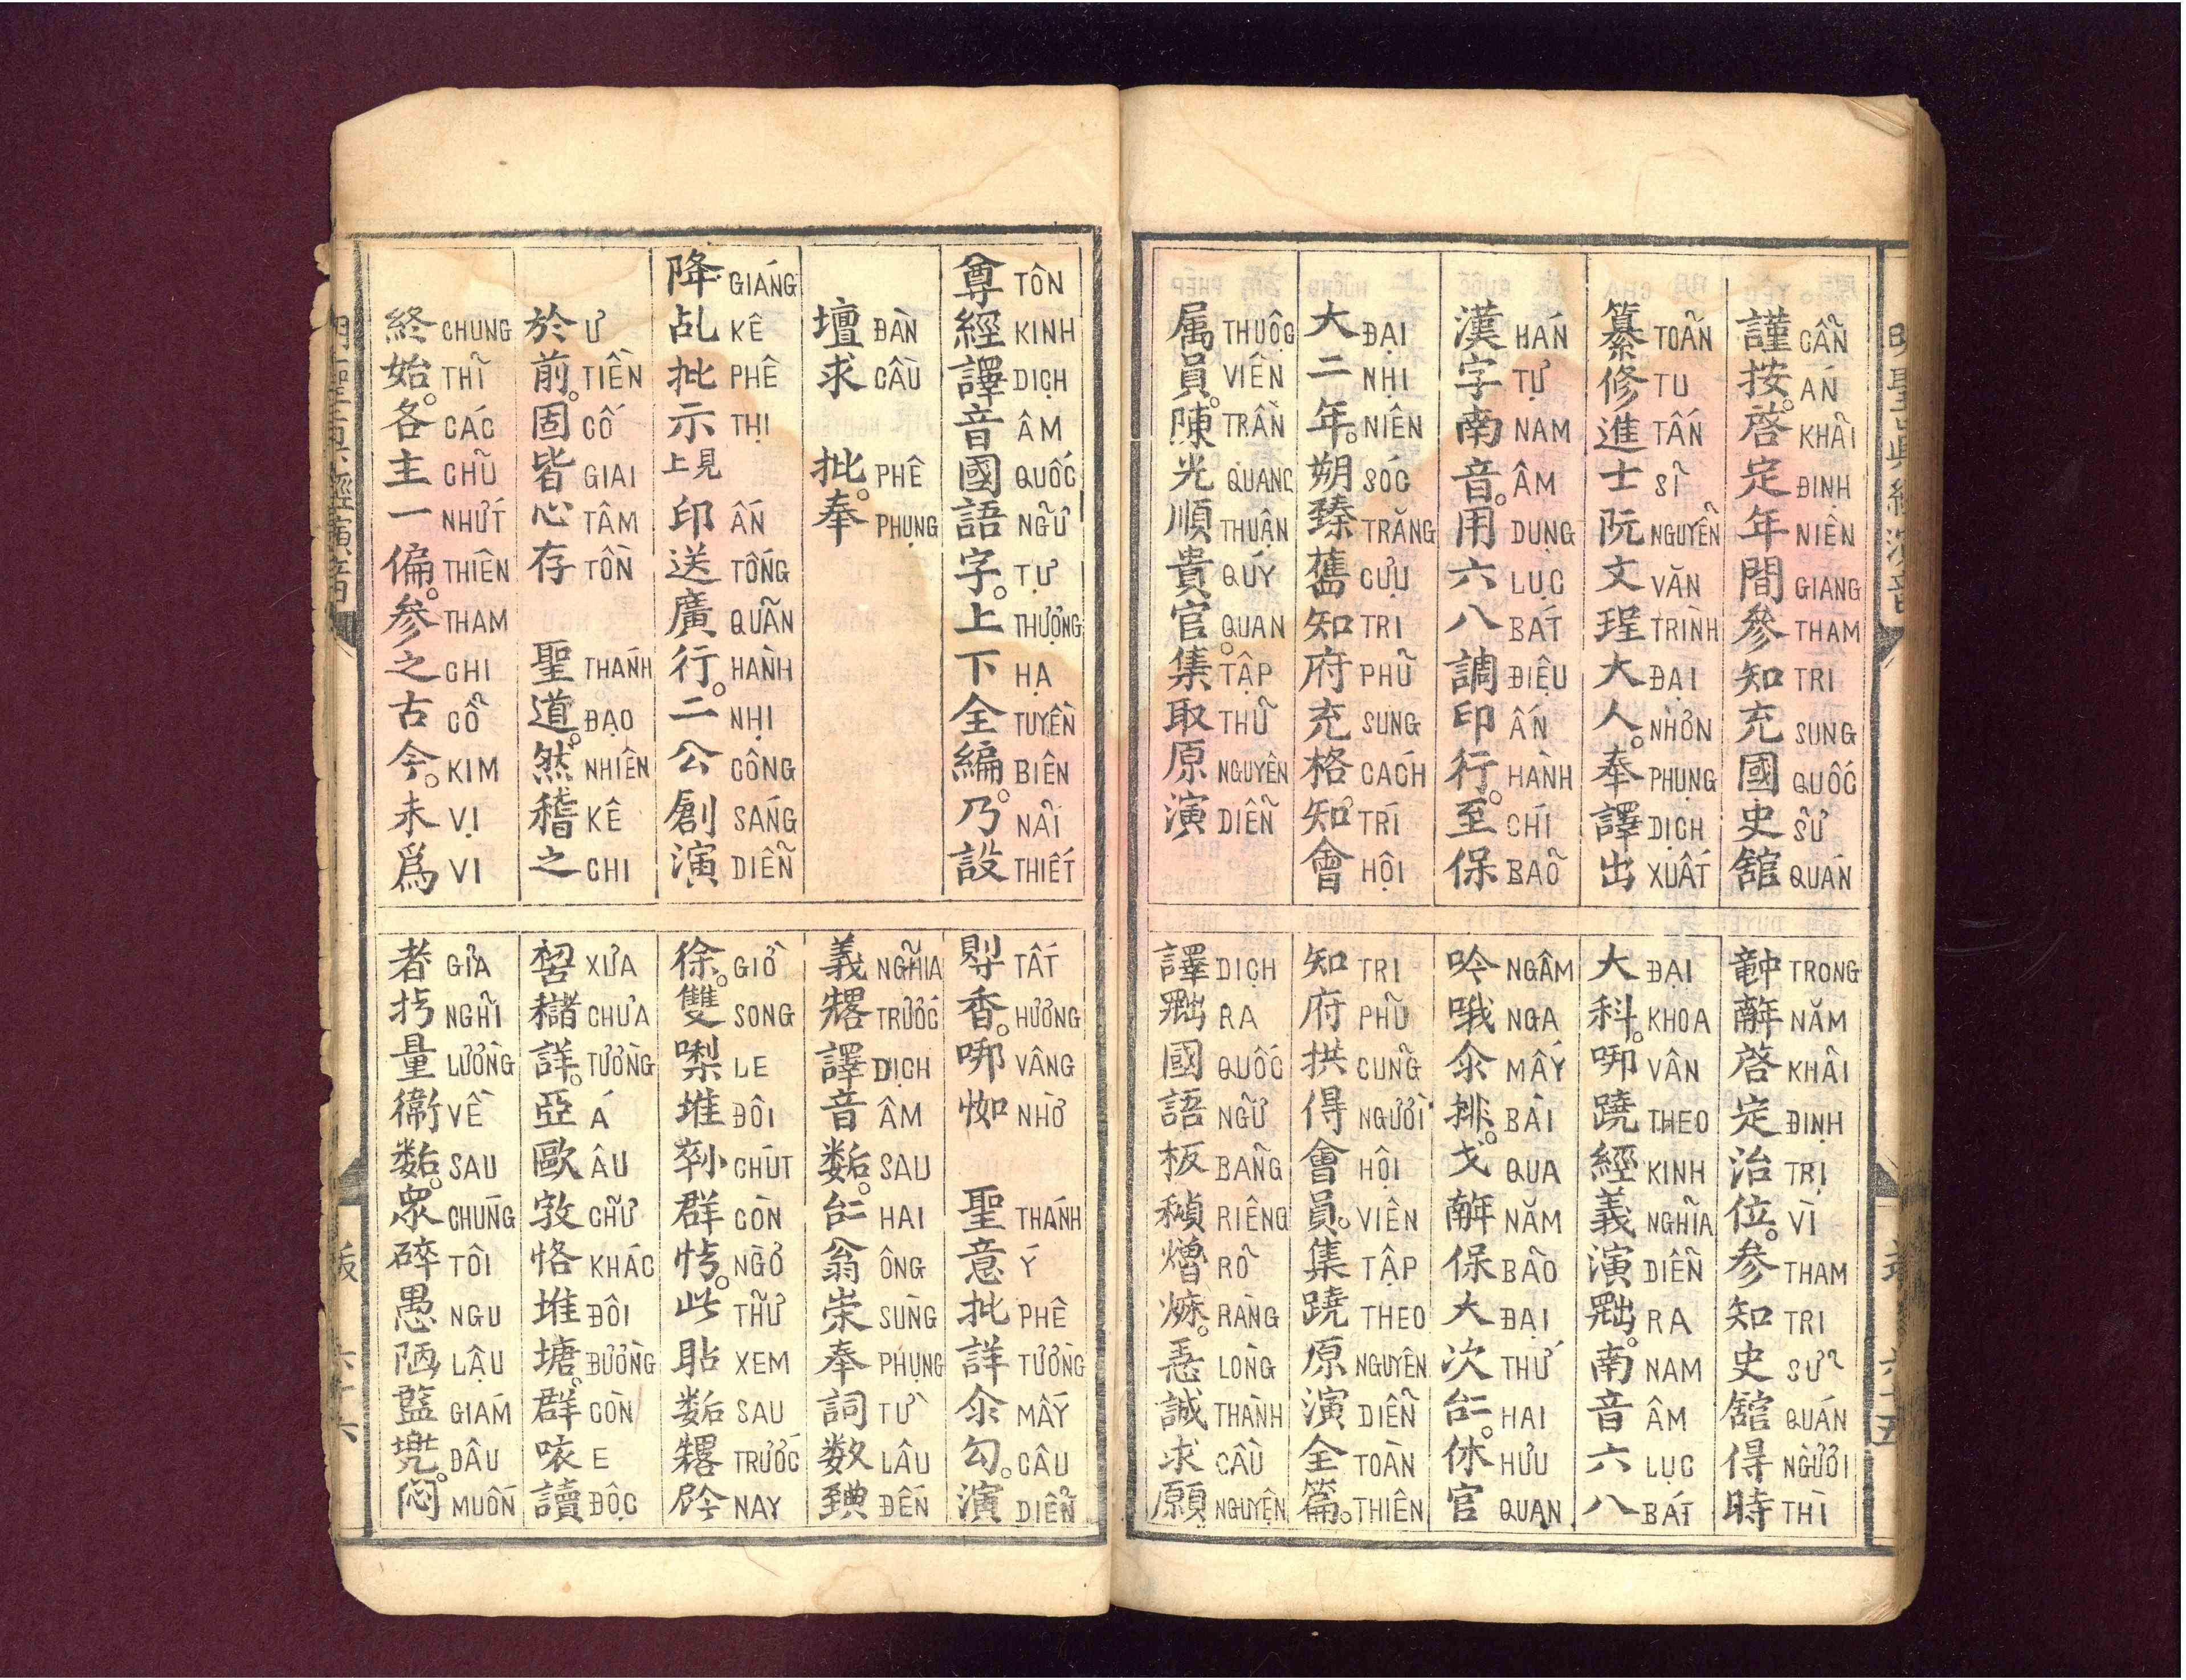 謹按。啓定年間參知充國史舘
CẨN ÁN KHẢI ĐỊNH NIÊN GIANG THAM TRI SUNG QUỐC SỬ QUÁN
纂修進士阮文珵大人。奉譯出
TOÃN TU TẤN SĨ NGUYỄN VĂN TRÌNH ĐẠI NHƠN PHỤNG DỊCH XUẤT
漢字南音。用六八調印行。至保
HÁN TỰ NAM ÂM DỤNG LỤC BÁT ĐIỆU ẤN HÀNH CHÍ BẢO
大二年。朔臻舊知府充格知會
ĐẠI NHỊ NIÊN SÓC TRĂNG CỰU TRI PHỦ SUNG CÁCH TRÍ HỘI
属員。陳光順貴官。集取原演
THUỘC VIÊN TRẦN QUANG THUẬN QÚY QUAN TẬP THỦ NGUYÊN DIỄN
𥪝𢆥啓定治位。参知史舘得時
TRONG NĂM KHẢI ĐỊNH TRỊ VÌ THAM TRI SỬ QUÁN NGƯỜI THÌ
大科。哪蹺經義演𦋦。南音六八
ĐẠI KHOA VÂN THEO KINH NGHĨA DIỄN RA NAM ÂM LỤC BÁT
吟哦尒排。戈𢆥保大次𠄩。休官
NGÂM NGA MẤY BÀI QUA NĂM BẢO ĐẠI THỨ HAI HƯU QUAN
知府拱得會員。集蹺原演全篇。
TRI PHỦ CŨNG NGƯỜI HỘI VIÊN TẬP THEO NGUYÊN DIỄN TOÀN THIÊN
譯𦋦國語板積燴。誠求願
DỊCH RA QUỐC NGỮ BẢNG RIÊNG RỎ RÀNG LÒNG THÀNH CẦU NGUYỆN
尊經譯音國語字。上下全編。乃設
TÔN KINH DỊCH ÂM QUỐC NGỮ TỰ THƯỢNG HẠ TUYỀN BIÊN NÃI THIẾT
壇求 批。奉
ĐÀN CẦU PHÊ PHỤNG
降乩批示上見印送廣行。二公創演
GIÁNG KÊ PHÊ THỊ ẤN TỐNG QUÃN HÀNH NHỊ CÔNG SÁNG DIỄN
於前。固皆心存 聖道。然稽之
Ư TIỀN CỐ GIAI TÂM TỒN THÁNH ĐẠO NHIÊN KÊ CHI
終始。各主一偏。參之古今。未爲
CHUNG THĨ CÁC CHŨ NHỨT THIÊN THAM CHI CỔ KIM VỊ VI
香。哪 聖意批詳尒勾。演
TẤT HƯƠNG VÂNG NHỜ THÁNH Ý PHÊ TƯỜNG MẤY CÂU DIỄN
義譯音𢖖。𠄩翁崇奉詞数
NGHĨA TRƯỚC DỊCH ÂM SAU HAI ÔNG SÙNG PHỤNG TỪ LÂU ĐẾN
徐。雙唎堆群。此䀡𢖖
GIỜ SONG LE ĐÔI CHÚT CÒN NGỜ THỮ XEM SAU TRƯỚC NAY
詳。亞歐恪堆塘。群咴讀
XƯA CHƯA TƯỜNG Á ÂU CHỮ KHÁC ĐÔI ĐƯỜNG CÒN E ĐỘC
者量𧗱𢖖。衆碎愚陋藍
GIẢ NGHĨ LƯỜNG VỀ SAU CHÚNG TÔI NGU LẬU GIÁM ĐÂU MUỐN
六十五
六十六